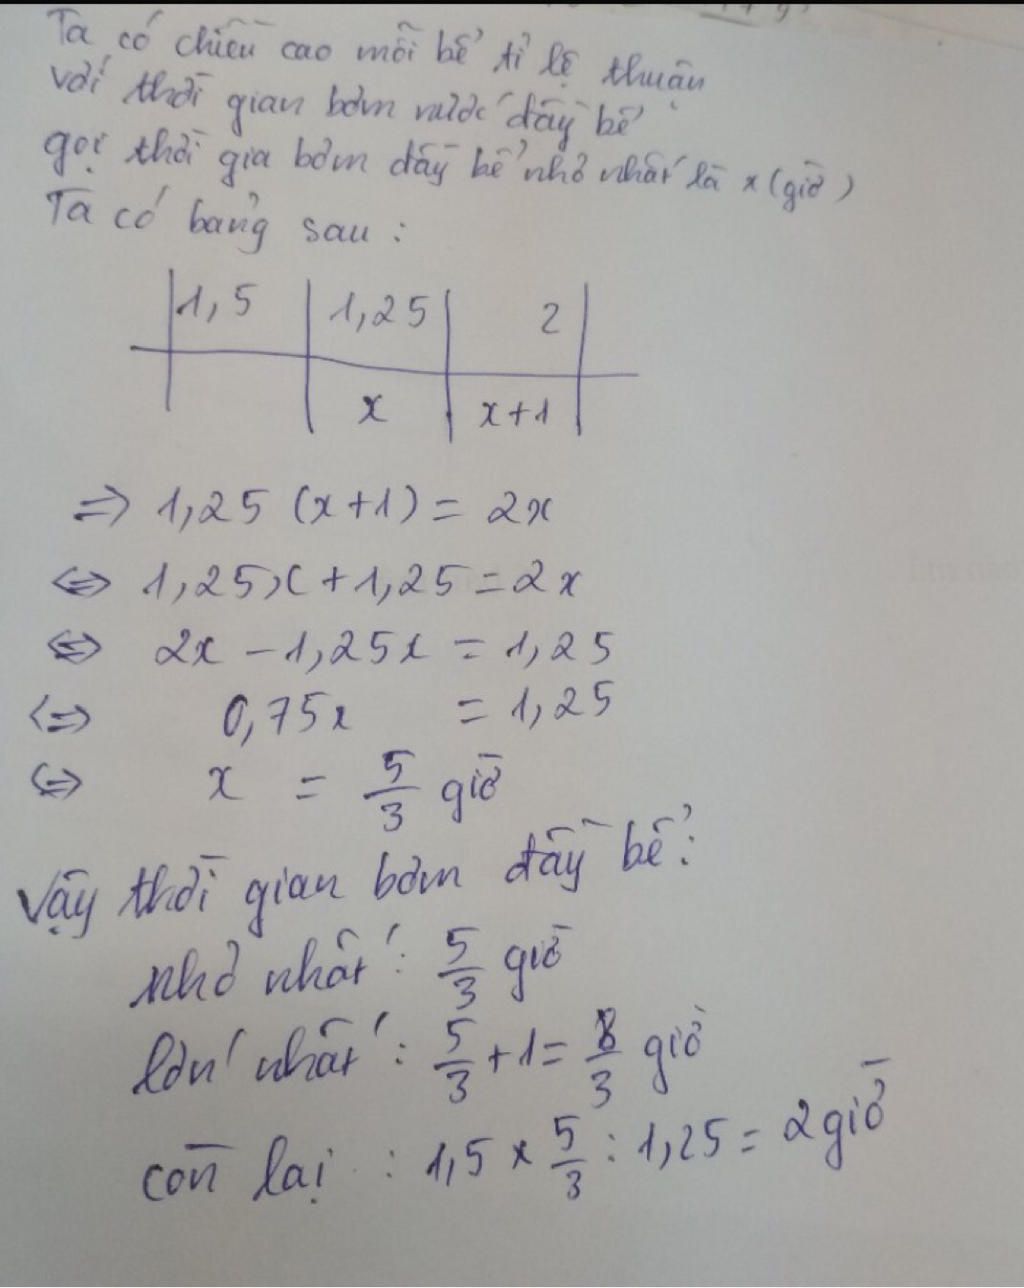 Ta có chiều cao mỗi bể tỉ lệ thuận
với thời gian bơm nước đầy bể
gọi thời gia bơm đầy bể nhỏ nhất là x (giờ)
Ta có bảng sau :
1,5 1,25 2
x x+1
=> 1,25 (x+1) = 2x
<=> 1,25x + 1,25 = 2x
<=> 2x - 1,25x = 1,25
<=> 0,75x = 1,25
<=> x = 5/3 giờ
Vậy thời gian bơm đầy bể :
nhỏ nhất : 5/3 giờ
lớn nhất : 5/3 + 1 = 8/3 giờ
còn lại : 1,5 x 5/3 : 1,25 = 2 giờ